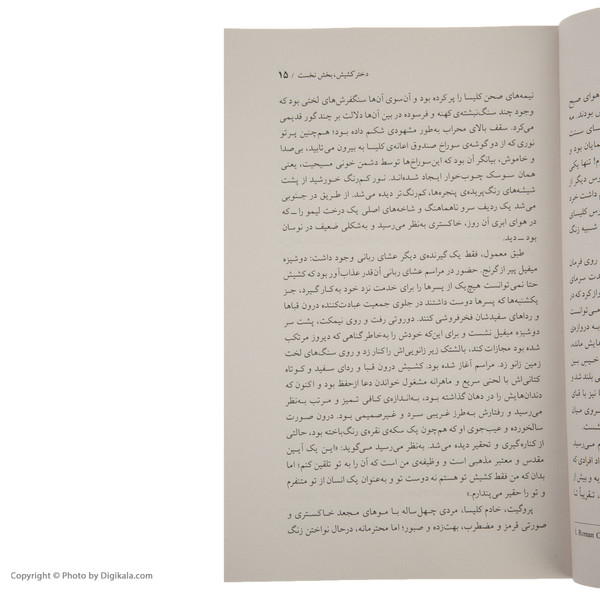 دختر کشیش، بخش نخست / ۱۵
نیمه‌های صحن کلیسا را پر کرده بود و آن‌سوی آن‌ها سنگفرش‌های لختی بود که
وجود چند سنگ‌نبشته‌ی کهنه و فرسوده در بین آن‌ها دلالت بر چند گور قدیمی
می‌کرد. سقف بالای محراب به‌طور مشهودی شکم داده بود؛ هم‌چنین پرتو
نوری که از دو گوشه‌ی سوراخ صندوق اعانه‌ی کلیسا به بیرون می‌تابید، بی‌صدا
و خاموش، بیانگر آن بود که این‌سوراخ‌ها توسط دشمن خونی مسیحیت، یعنی
همان سوسک چوب‌خوار ایجاد شده‌اند. نور کم‌رنگ خورشید از پشت
شیشه‌های رنگ‌پریده‌ی پنجره‌ها، کم‌رنگ‌تر دیده می‌شد. از طریق در جنوبی
می‌شد یک ردیف سرو ناهماهنگ و شاخه‌های اصلی یک درخت لیمو را ــ که
در هوای ابری آن روز، خاکستری به‌نظر می‌رسید و به‌شکلی ضعیف در نوسان
بود ــ دید.
طبق معمول، فقط یک گیرنده‌ی دیگر عشای ربانی وجود داشت: دوشیزه
میفیل پیر از گرنج. حضور در مراسم عشای ربانی آن‌قدر عذاب‌آور بود که کشیش
حتا نمی‌توانست هیچ‌یک از پسرها را برای خدمت نزد خود به‌کار گیرد، جز
یکشنبه‌ها که پسرها دوست داشتند در جلوی جمعیت عبادت‌کننده درون قباها
و رداهای سفیدشان فخرفروشی کنند. دوروتی رفت و روی نیمکت، پشت سر
دوشیزه میفیل نشست و برای این‌که خودش را به‌خاطر گناهی که دیروز مرتکب
شده بود مجازات کند، بالشتک زیر زانویی‌اش را کنار زد و روی سنگ‌های لخت
زمین زانو زد. مراسم آغاز شده بود. کشیش درون قبا و ردای سفید و کوتاه
کتانی‌اش با لحنی سریع و ماهرانه مشغول خواندن دعا از حفظ بود و اکنون که
دندان‌هایش را در دهان گذاشته بود، به‌اندازه‌ی کافی تمیز و مرتب به‌نظر
می‌رسید و رفتارش به‌طرز غریبی سرد و غیرصمیمی بود. درون صورت
سالخورده و عیب‌جوی او که هم‌چون یک سکه‌ی نقره‌ی رنگ‌باخته بود، حالتی
از کناره‌گیری و تحقیر دیده می‌شد. به‌نظر می‌رسید می‌گوید: «این یک آیین
مقدس و معتبر مذهبی است و وظیفه‌ی من است که آن را به تو تلقین کنم؛ اما
بدان که من فقط کشیش تو هستم نه دوست تو و به‌عنوان یک انسان از تو متنفرم
و تو را حقیر می‌پندارم.»
پروگیت، خادم کلیسا، مردی چهل‌ساله با موهای مجعد خاکستری و
صورتی قرمز و مضطرب، بهت‌زده و صبور؛ اما محترمانه، درحال نواختن زنگ
Copyright © Photo by Digikala.com